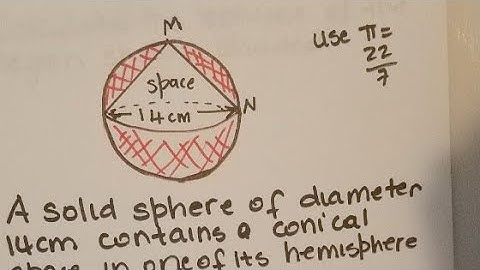 M
use π=
22
7
space
14cm
N
A solid sphere of diameter
14cm contains a conical
space in one of its hemisphere